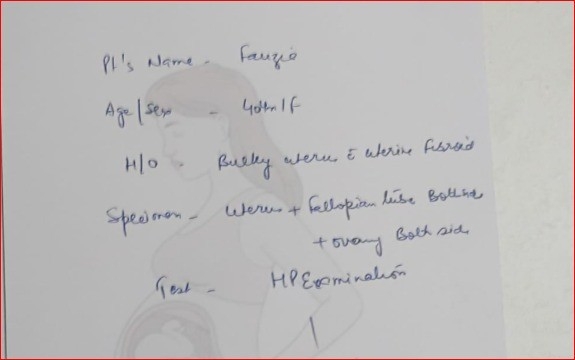 Pt's Name - Fauzia
Age/Sex - 40th/F
H/O - Bulky uterus c̄ uterine fibroid
Specimen - Uterus + Fallopian tube Both side
+ ovary Both side
Test - HP Examination